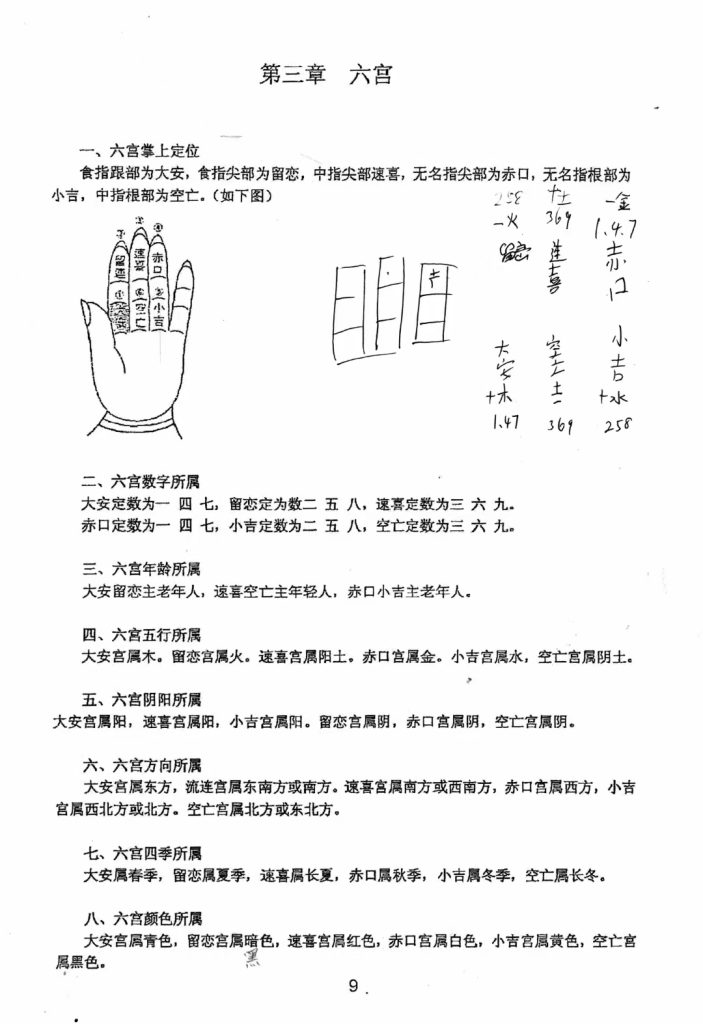 第三章 六宫
一、六宫掌上定位
食指跟部为大安，食指尖部为留恋，中指尖部速喜，无名指尖部为赤口，无名指根部为
小吉，中指根部为空亡。（如下图）
258 十土 一金
一火 369 1.4.7
留恋 速喜 赤口
② ③ ④
留恋 速喜 赤口
① ⑥ ⑤
大安 空亡 小吉
大安 空亡 小吉
十木 土一 十水
1.47 369 258
二、六宫数字所属
大安定数为一 四 七，留恋定为数二 五 八，速喜定数为三 六 九。
赤口定数为一 四 七，小吉定数为二 五 八，空亡定数为三 六 九。
三、六宫年龄所属
大安留恋主老年人，速喜空亡主年轻人，赤口小吉主老年人。
四、六宫五行所属
大安宫属木。留恋宫属火。速喜宫属阳土。赤口宫属金。小吉宫属水，空亡宫属阴土。
五、六宫阴阳所属
大安宫属阳，速喜宫属阳，小吉宫属阳。留恋宫属阴，赤口宫属阴，空亡宫属阴。
六、六宫方向所属
大安宫属东方，流连宫属东南方或南方。速喜宫属南方或西南方，赤口宫属西方，小吉
宫属西北方或北方。空亡宫属北方或东北方。
七、六宫四季所属
大安属春季，留恋属夏季，速喜属长夏，赤口属秋季，小吉属冬季，空亡属长冬。
八、六宫颜色所属
大安宫属青色，留恋宫属暗色，速喜宫属红色，赤口宫属白色，小吉宫属黄色，空亡宫
属黑色。
黑
9